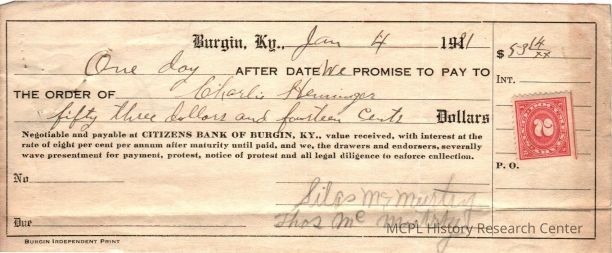 Burgin, Ky., Jan 4 1921 $53 14/xx
One day AFTER DATE We PROMISE TO PAY TO INT.
THE ORDER OF Charlie Heminger
fifty three dollars and fourteen Cents Dollars
Negotiable and payable at CITIZENS BANK OF BURGIN, KY., value received, with interest at the
rate of eight per cent per annum after maturity until paid, and we, the drawers and endorsers, severally
wave presentment for payment, protest, notice of protest and all legal diligence to enforce collection.
P. O.
2
No
Silas McMurtry
Due Thos Mc Murtry
MCPL History Research Center
BURGIN INDEPENDENT PRINT